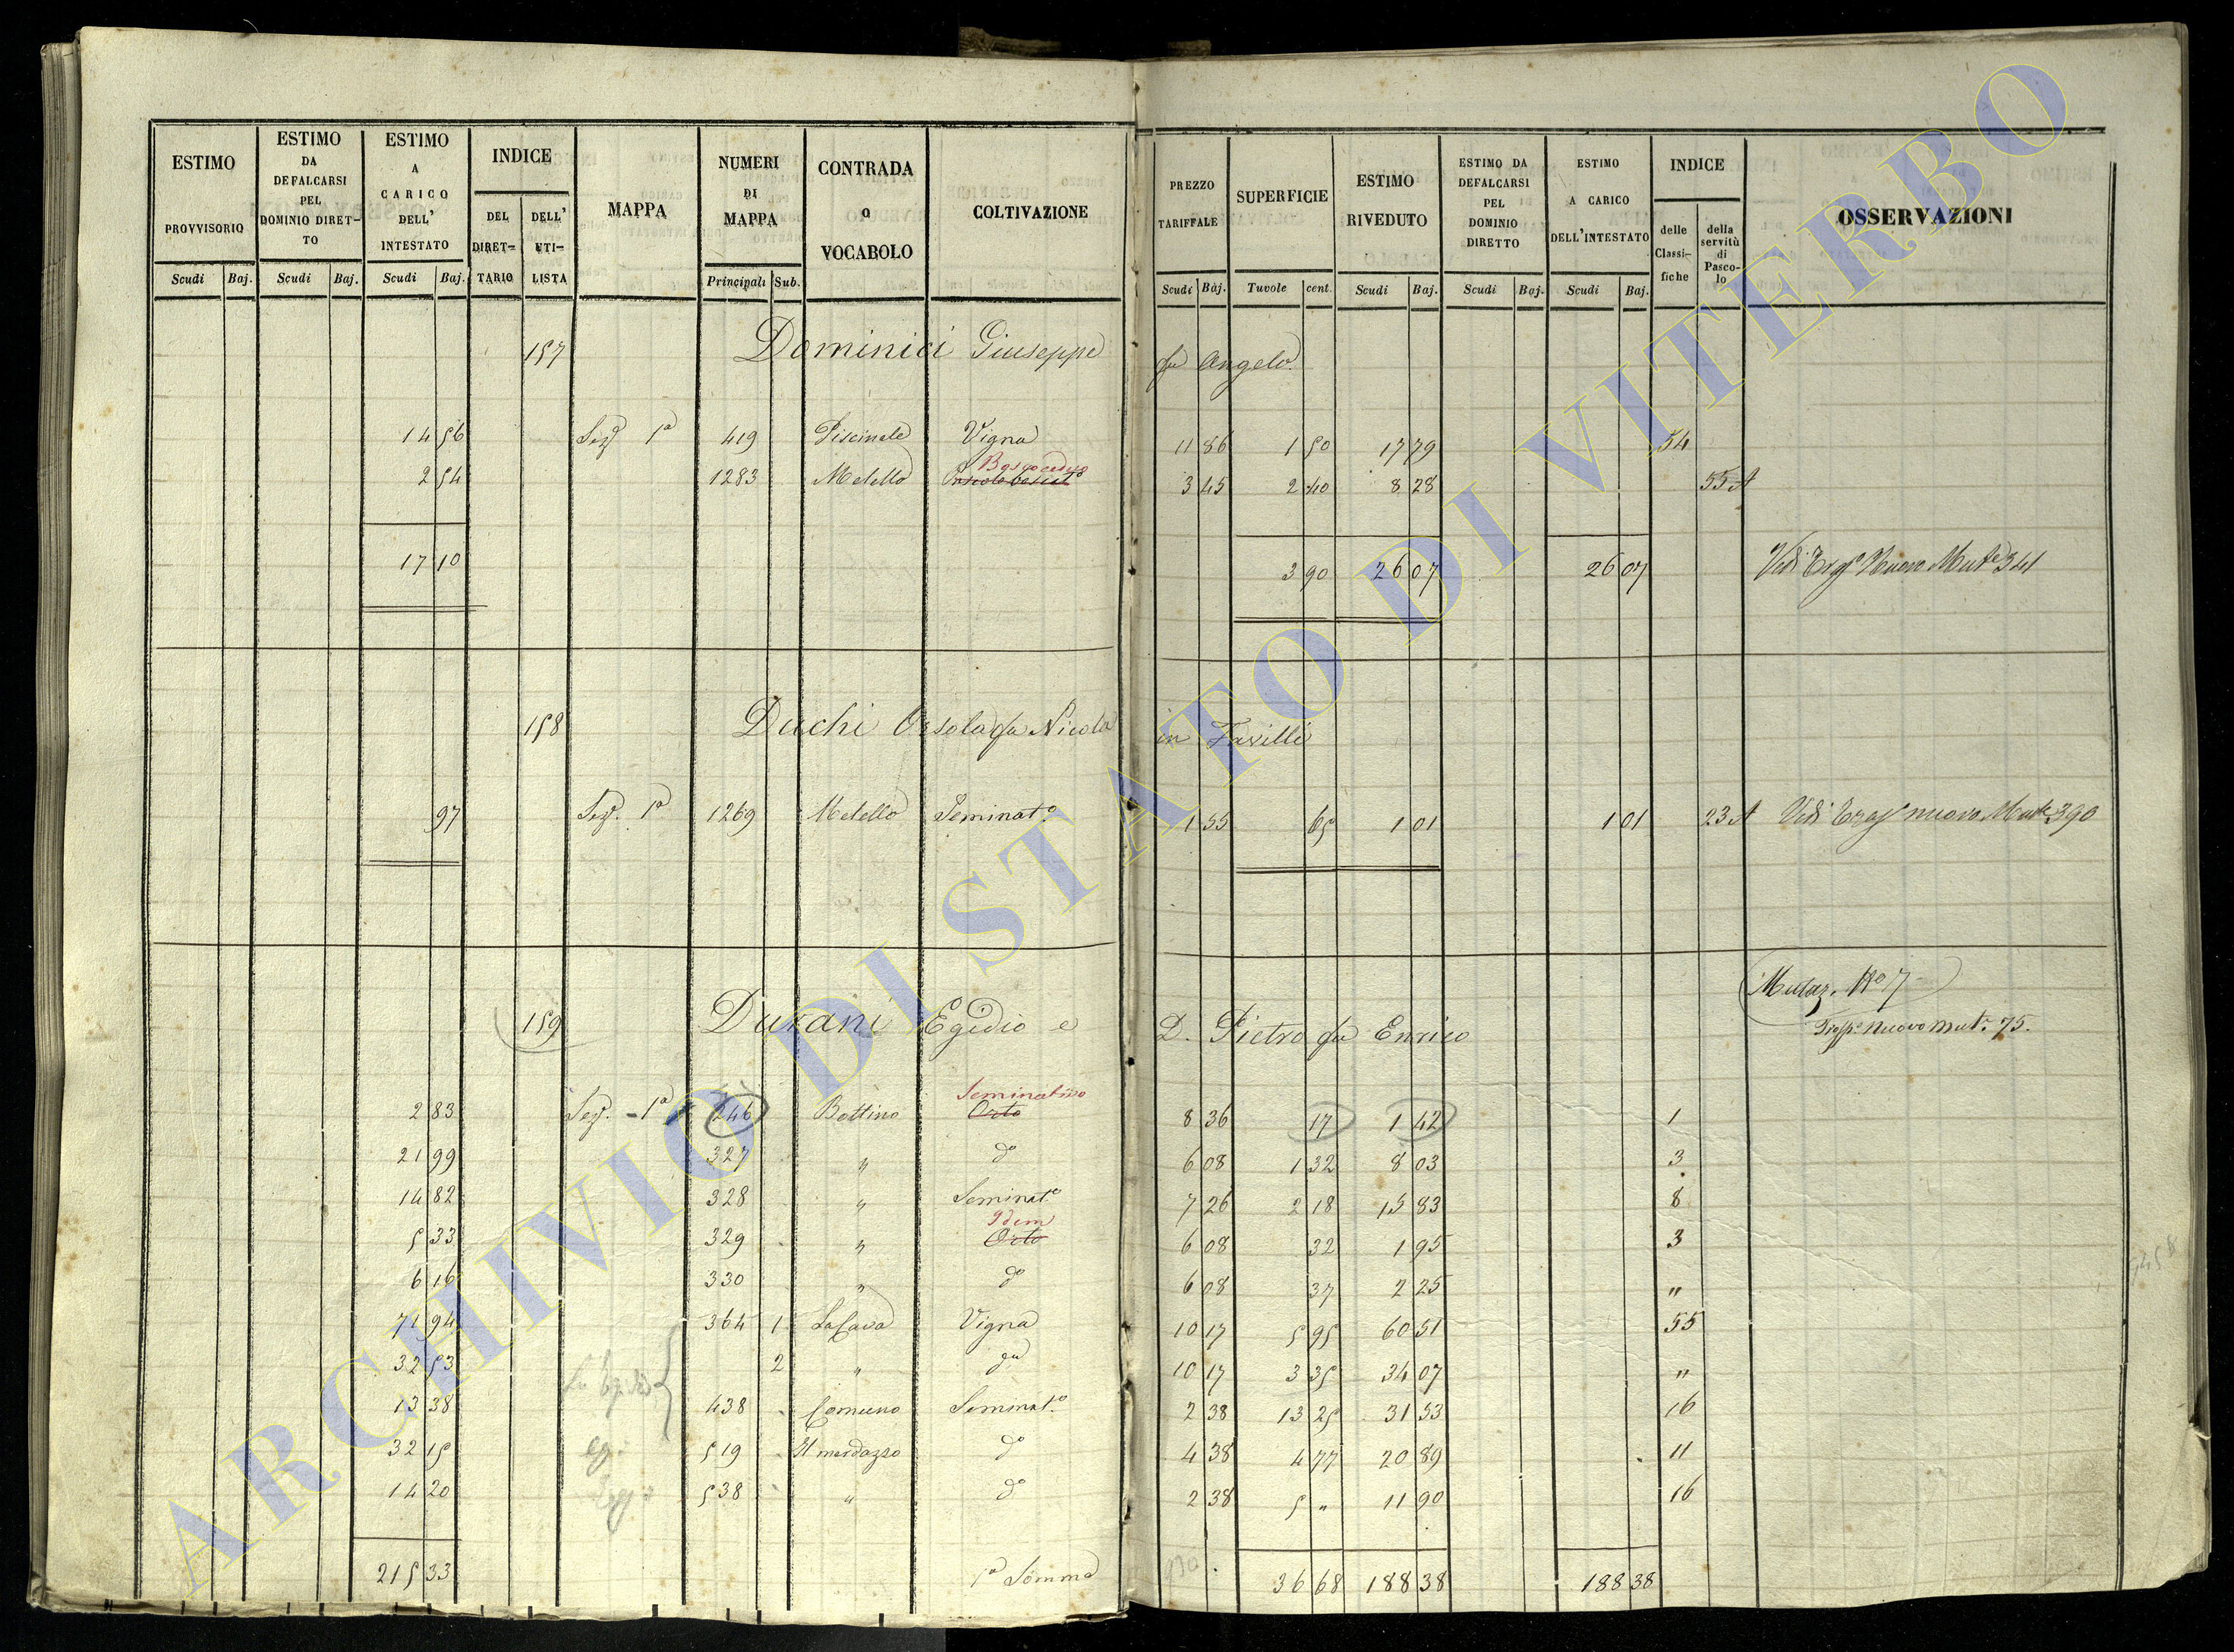 ESTIMO PROVVISORIO Scudi Baj.
ESTIMO DA DEFALCARSI PEL DOMINIO DIRET- TO Scudi Baj.
ESTIMO A CARICO DELL' INTESTATO Scudi Baj.
INDICE DEL DIRET- TARIO DELL' UTI- LISTA
MAPPA
NUMERI DI MAPPA Principali Sub.
CONTRADA O VOCABOLO
COLTIVAZIONE
PREZZO TARIFFALE Scudi Baj.
SUPERFICIE Tuvole cent.
ESTIMO RIVEDUTO Scudi Baj.
ESTIMO DA DEFALCARSI PEL DOMINIO DIRETTO Scudi Baj.
ESTIMO A CARICO DELL'INTESTATO Scudi Baj.
INDICE delle Classi- fiche della servitù di Pasco- lo
OSSERVAZIONI
157 Dominici Giuseppe fu Angelo
14 56 Sez. 1a 419 Piscinale Vigna 11 86 1 50 17 79 54
2 54 1283 Melello Bosco ceduo 3 45 2 40 8 28 55 A
17 10 3 90 26 07 26 07 341
158 Duchi Orsola fu Nicola in Favilli
97 Sez. 1a 1269 Melello Seminat.o 1 55 65 1 01 1 01 23 A 390
Mutaz. No 7
159 Durani Egidio e D. Pietro fu Enrico nuovo mut. 75.
Seminativo
2 83 Sez. 1a 246 Bottino Orto 8 36 17 1 42 1
21 99 327 " do 6 08 1 32 8 03 3
14 82 328 " Seminat.o 7 26 2 18 15 83 8
Idem
5 33 329 " Orto 6 08 32 1 95 3
6 16 330 " do 6 08 37 2 25 "
71 94 364 1 La Cava Vigna 10 17 5 95 60 51 55
32 53 2 " do 10 17 3 35 34 07 "
13 38 438 Comuno Seminat.o 2 38 13 25 31 53 16
32 15 519 Il merdazzo do 4 38 4 77 20 89 11
14 20 538 " do 2 38 5 " 11 90 16
215 33 1a Somma 36 68 188 38 188 38
ARCHIVIO DI STATO DI VITERBO